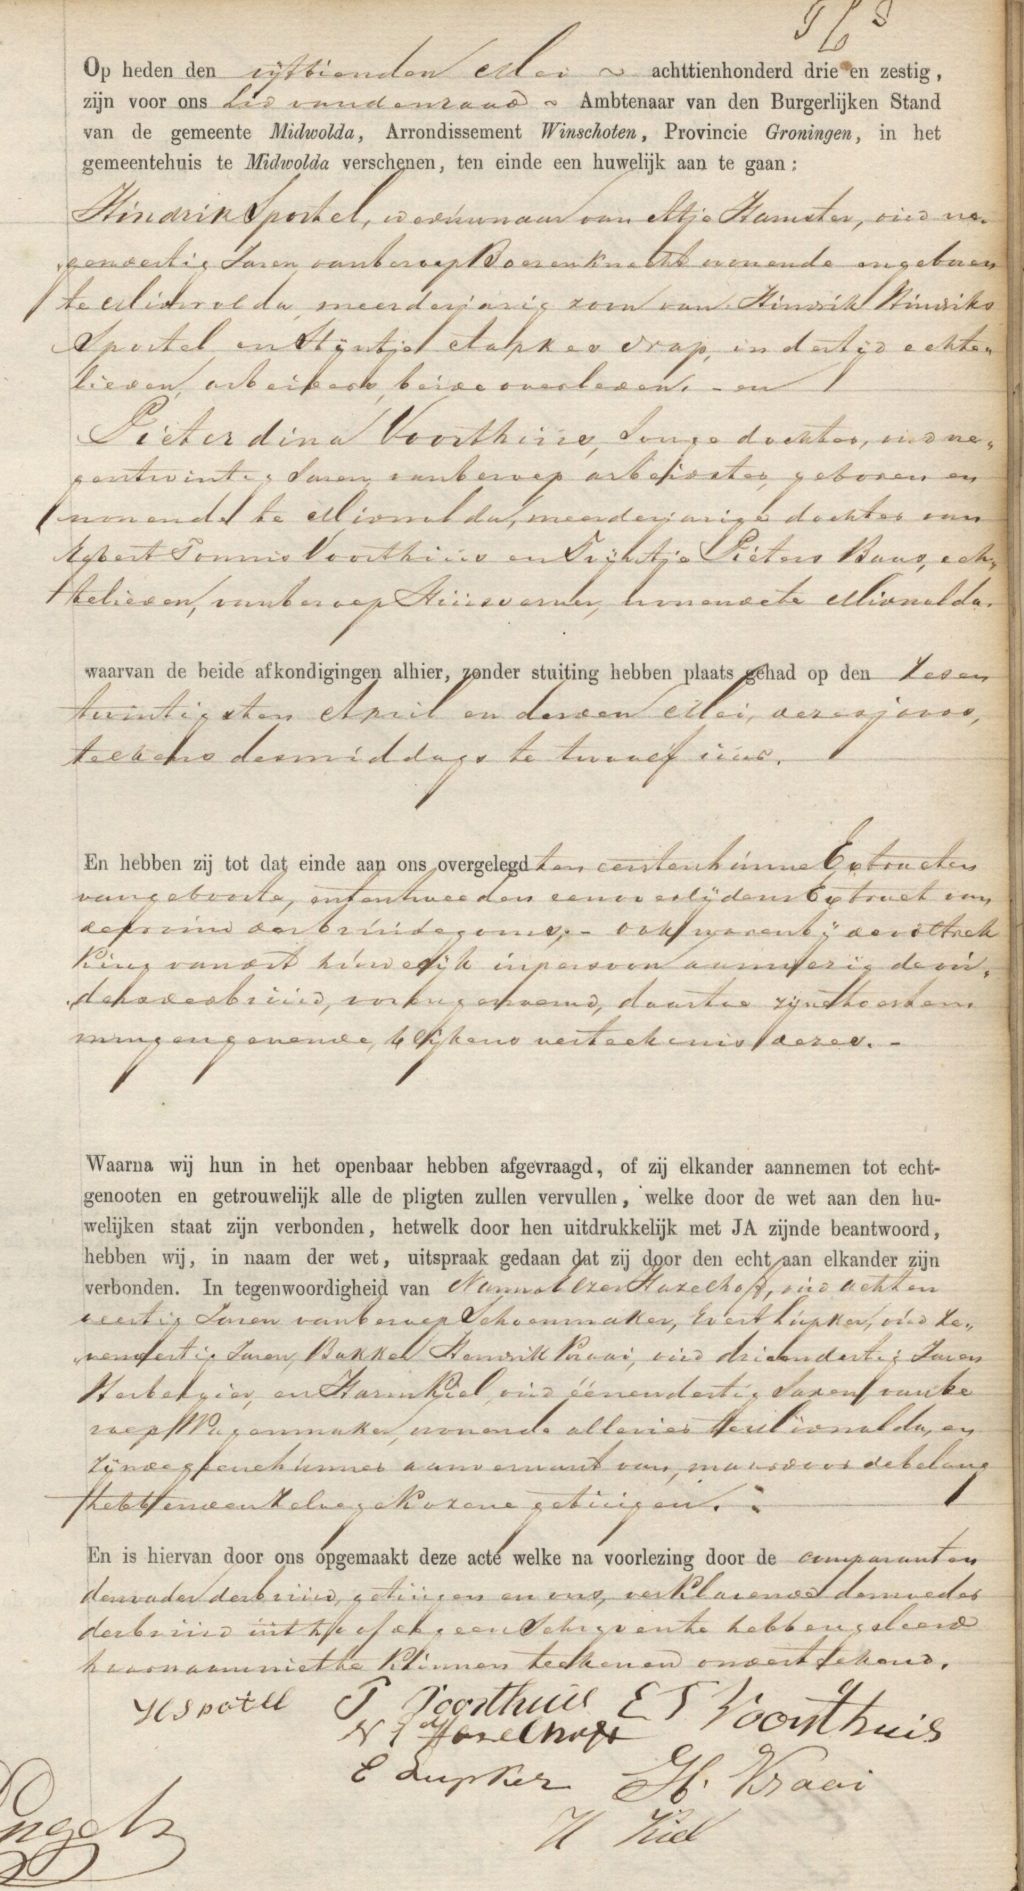 Op heden den vijftienden Mei ~ achttienhonderd drie en zestig,
zijn voor ons Lid van den raad ~ Ambtenaar van den Burgerlijken Stand
van de gemeente Midwolda, Arrondissement Winschoten, Provincie Groningen, in het
gemeentehuis te Midwolda verschenen, ten einde een huwelijk aan te gaan:
Hindrik Sportel, weduwnaar van Atje Hamster, oud ne-
genveertig Jaren, van beroep Boerenknecht wonende en geboren
te Midwolda, meerderjarig zoon van Hindrik Hindriks
Sportel en Stijntje Tapkes Drap, in der tijd echte-
lieden, arbeiders, beide overleden. - en
Pieterdina Voorthuis, Jonge dochter, oud ne-
gentwintig Jaren, van beroep arbeidster, geboren en
wonende te Midwolda, meerderjarige dochter van
Egbert Tonnis Voorthuis en Trijntje Pieters Baas, ech-
telieden, van beroep Huisverwer, wonende te Midwolda.
waarvan de beide afkondigingen alhier, zonder stuiting hebben plaats gehad op den Zesen
twintigsten April en derden Mei, dezes jaars,
telkens des middags te twaalf uur.
En hebben zij tot dat einde aan ons overgelegd ten eersten hunne Extracten
van geboorte, en ten tweeden een overlijdens Extract van
de vrouw des bruidegoms; - ook waren bij de voltrek
king van dit huwelijk in persoon aanwezig de ou-
ders der bruid, voornoemd, daartoe zijn toestem
ming gevende, blijkens verteekenis dezes. -
Waarna wij hun in het openbaar hebben afgevraagd, of zij elkander aannemen tot echt-
genooten en getrouwelijk alle de pligten zullen vervullen, welke door de wet aan den hu-
welijken staat zijn verbonden, hetwelk door hen uitdrukkelijk met JA zijnde beantwoord,
hebben wij, in naam der wet, uitspraak gedaan dat zij door den echt aan elkander zijn
verbonden. In tegenwoordigheid van Nanno Hazelhoff, oud achten
veertig Jaren van beroep Schoenmaker, Evert Lupker, oud ze-
venveertig Jaren, Bakker Hendrik Kraai, oud drieendertig Jaren
Herbergier, en Harm Kiel, oud éénendertig Jaren, van be
roep Wagenmaker, wonende allen te Midwolda, en
zijnde geene hunner aanverwant van, maar door de belang
hebbenden zelve gekozene getuigen.
En is hiervan door ons opgemaakt deze acte welke na voorlezing door de comparanten
den vader der bruid, getuigen en ons, verklarende de moeder
der bruid uit hoofde geen Schrijven te hebben geleerd
haar naam niet te kunnen teekenen onderteekend.
H Sportel P Voorthuis E T Voorthuis
N Hazelhoff
E Lupker H. Kraai
H Kiel
Engels